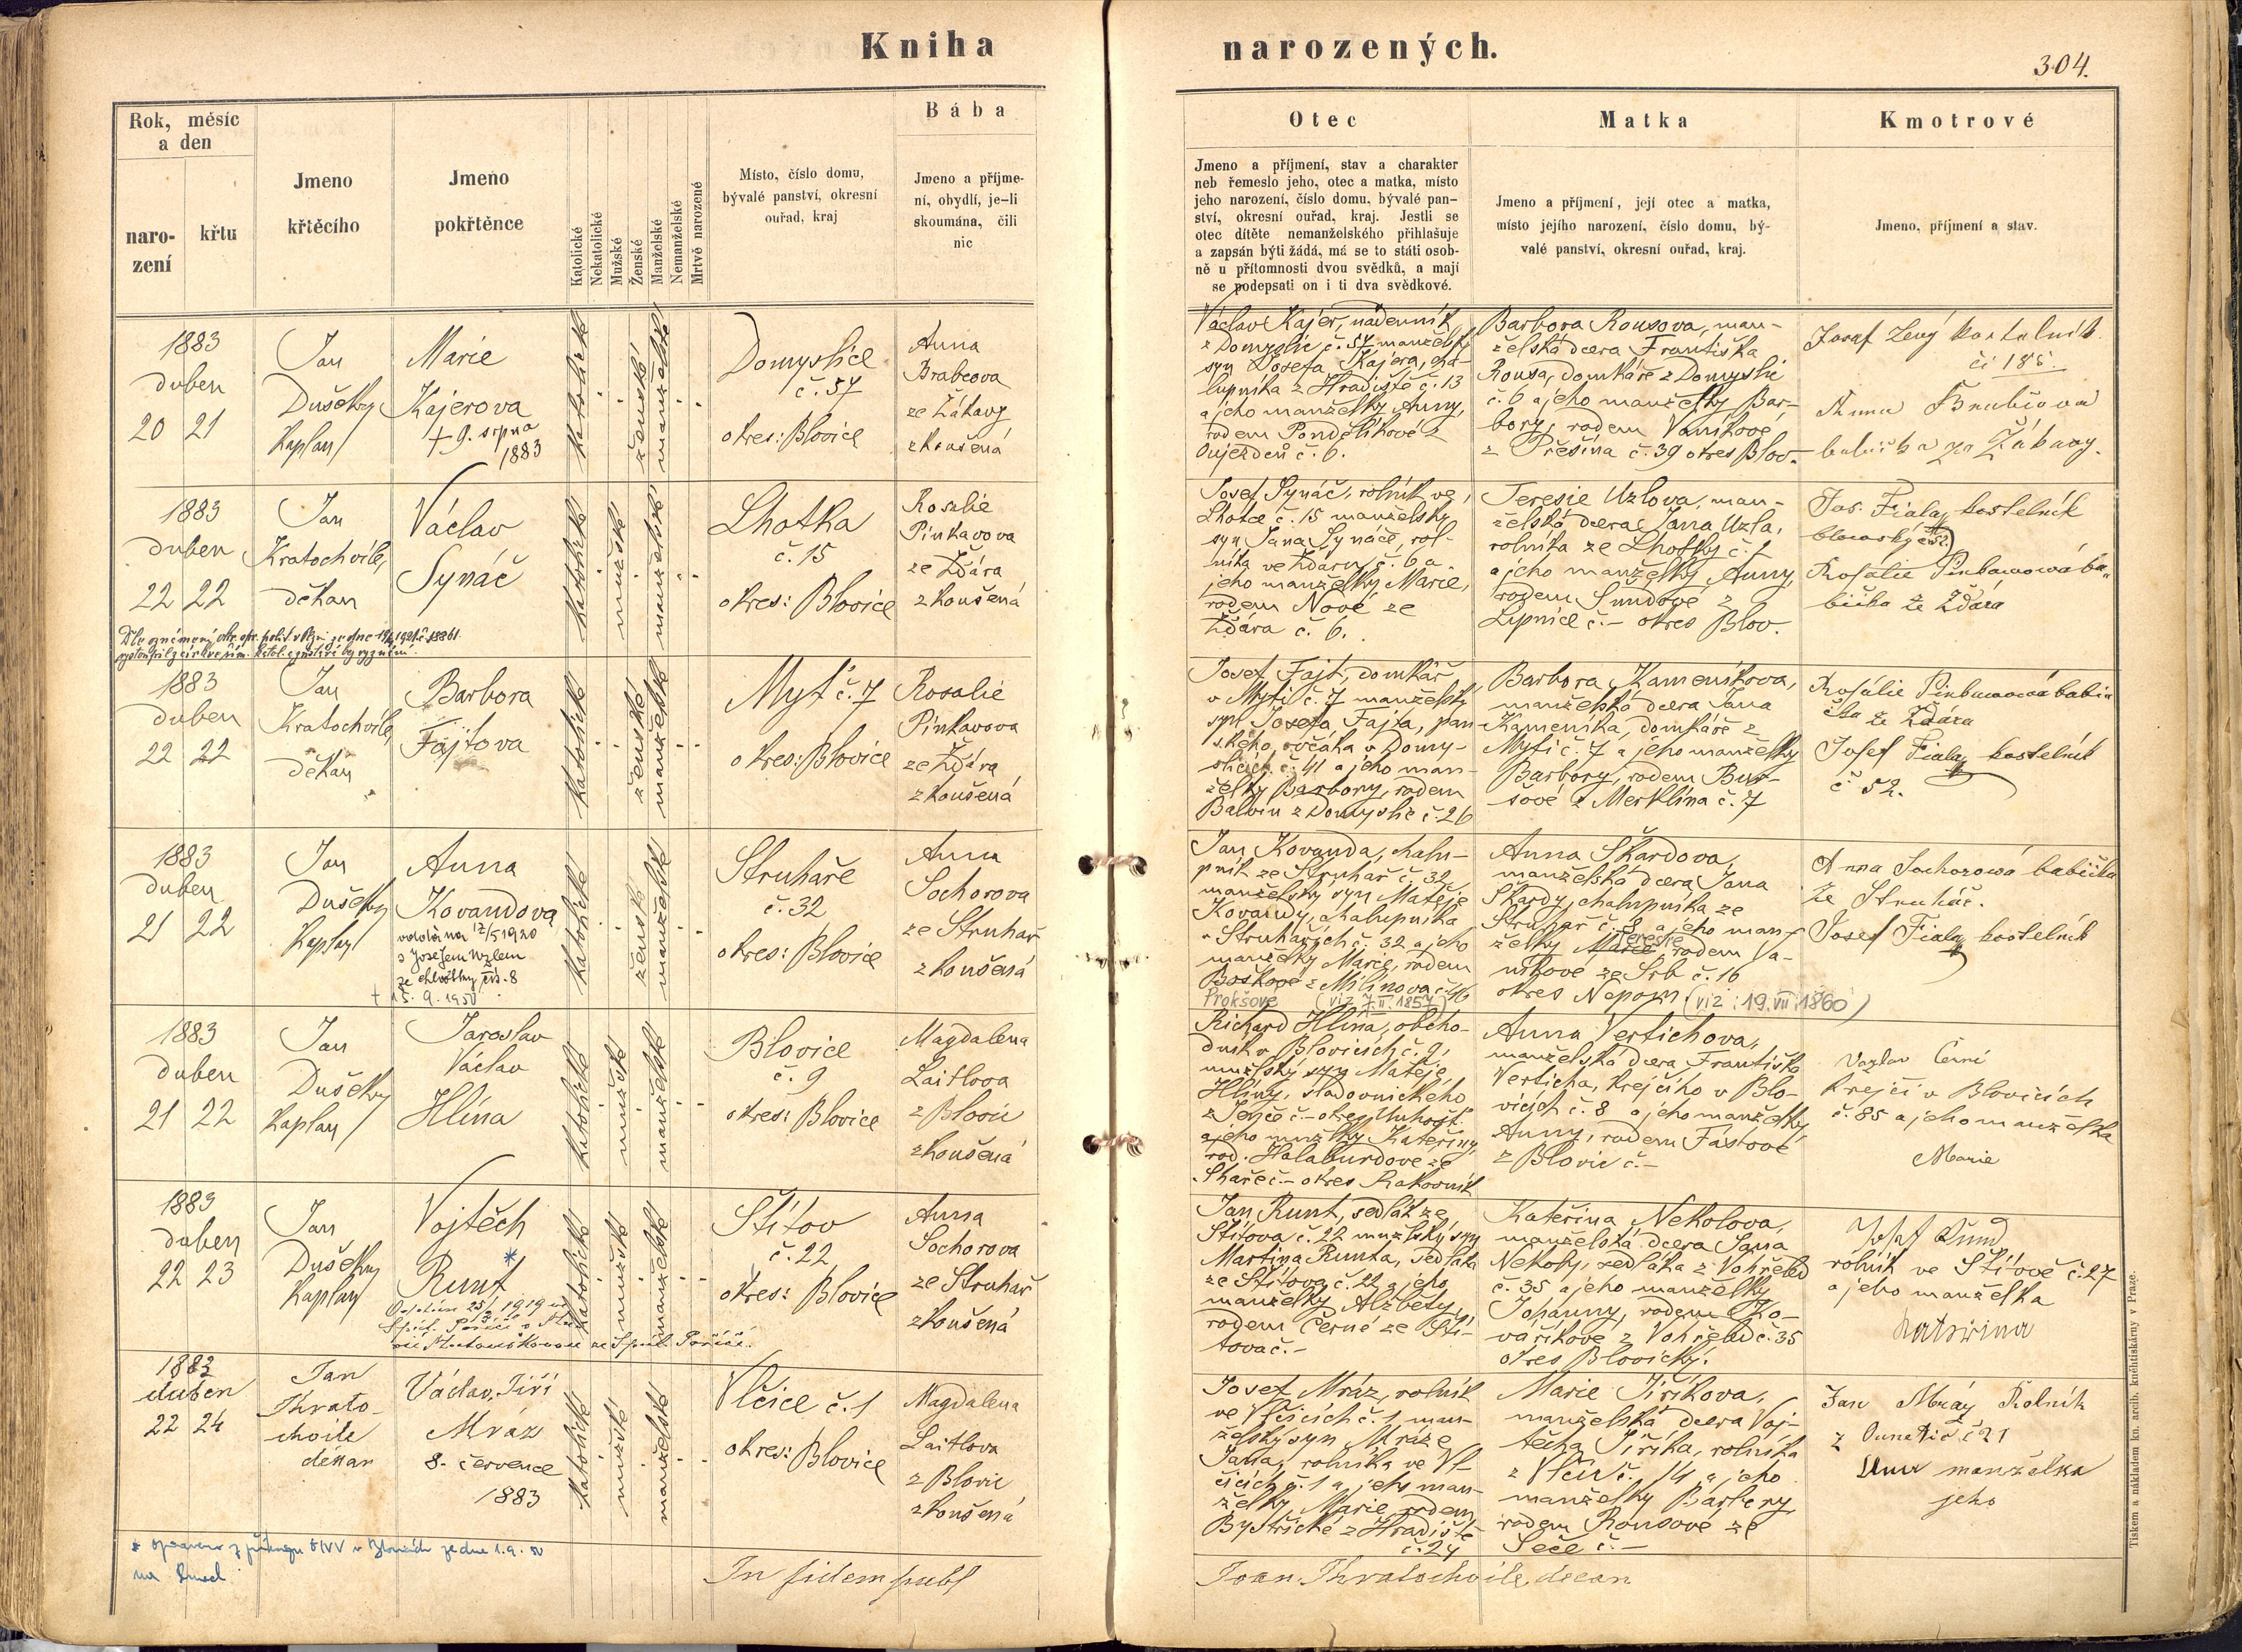 Kniha narozených.
304.
Rok, měsíc
a den
naro-
zení
křtu
Jmeno
křtěcího
Jmeno
pokřtěnce
Katolické
Nekatolické
Mužské
Ženské
Manželské
Nemanželské
Mrtvě narozené
Místo, číslo domu,
bývalé panství, okresní
ouřad, kraj
Bába
Jmeno a příjme-
ní, obydlí, je-li
skoumána, čili
nic
Otec
Jmeno a příjmení, stav a charakter
neb řemeslo jeho, otec a matka, místo
jeho narození, číslo domu, bývalé pan-
ství, okresní ouřad, kraj. Jestli se
otec dítěte nemanželského přihlašuje
a zapsán býti žádá, má se to státi osob-
ně u přítomnosti dvou svědků, a mají
se podepsati on i ti dva svědkové.
Matka
Jmeno a příjmení, její otec a matka,
místo jejího narození, číslo domu, bý-
valé panství, okresní ouřad, kraj.
Kmotrové
Jmeno, příjmení a stav.
1883
duben
20 21
Jan
Dušek
Kaplan
Marie
Kajerova
+ 9. srpna
1883
katolické
ženské
manželské
Domyslice
č. 57
okres: Blovice
Anna
Brabcova
ze Žákavy
zkoušená
Václav Kajer, nádenník
z Domyslic č. 57 manželský
syn Josefa Kajera, cha-
lupníka z Hradiště č. 13
a jeho manželky Anny,
rodem Pondělíkové z
Oujezden č. 6.
Barbora Rousova, man-
želská dcera Františka
Rousa, domkáře z Domyslic
č. 6 a jeho manželky Bar-
bory, rodem Vaníkové
z Přešína č. 39 okres Blov.
Josef Lený kostelník
či 185.
Anna Brabcova
babička ze Žákavy.
1883
duben
22 22
Jan
Kratochvíle,
děkan
Václav
Synáč
katolické
mužské
manželské
Lhotka
č. 15
okres: Blovice
Rosalie
Pinkavova
ze Ždára
zkoušená
Josef Synáč, rolník ve
Lhotce č. 15 manželský
syn Jana Synáče, rol-
níka ve Ždáru č. 6 a
jeho manželky Marie,
rodem Nové ze
Ždára č. 6.
Teresie Uzlova, man-
želská dcera Jana Uzla,
rolníka ze Lhotky č. 1
a jeho manželky Anny,
rodem Šundové z
Lipnice č. – okres Blov.
Jos. Fiala kostelník
blovický č 52
Rosálie Pinkawowá ba-
bička ze Ždára
1883
duben
22 22
Jan
Kratochvíle,
děkan
Barbora
Fajtova
katolické
ženské
manželské
Myť č. 7
okres: Blovice
Rosalie
Pinkavova
ze Ždára
zkoušená
Josef Fajt, domkář
v Myti č. 7 manželský
syn Josefa Fajta, pan-
ského ovčáka v Domy-
slicích č. 41 a jeho man-
želky Barbory, rodem
Balvín z Domyslic č. 26
Barbora Kameníkova,
manželská dcera Jana
Kameníka, domkáře z
Myti č. 7 a jeho manželky
Barbory, rodem Bur-
šové z Merklína č. 7
Rosálie Pinkawowá babi-
čka ze Ždára
Josef Fiala kostelník
č 52.
1883
duben
21 22
Jan
Dušek
Kaplan
Anna
Kovandova
oddána 17/5 1920
s Josefem Uzlem
ze Lhotky čís. 8
+ 15. 9. 1950
katolické
ženské
manželské
Struhaře
č. 32
okres: Blovice
Anna
Sochorova
ze Struhař
zkoušená
Jan Kovanda, chalu-
pník ze Struhař č. 32,
manželský syn Matěje
Kovandy, chalupníka
v Struhařích č. 32 a jeho
manželky Marie, rodem
Boškové z Milínova č. 46
Prokšové (viz 7. II. 1857)
Anna Škardova,
manželská dcera Jana
Škardy, chalupníka ze
Struhař č. 8 a jeho man-
želky Marie Teresie rodem Va-
níkové ze Srb č. 16
okres Nepom. (viz: 19. VII. 1860)
Anna Sochorowá babička
Ze Struhař.
Josef Fiala kostelník
1883
duben
21 22
Jan
Dušek
Kaplan
Jaroslav
Václav
Hlína
katolické
mužské
manželské
Blovice
č. 9
okres: Blovice
Magdalena
Laitlova
z Blovic
zkoušená
Richard Hlína, obcho-
dník v Blovicích č. 9,
mnžlský syn Matěje
Hlíny, sladovnického
a jeho mnžlky Kateřiny,
rod. Halaburdove ze
okres Rakovník
Anna Vertichova,
manželská dcera Františka
Verticha, krejčího v Blo-
vicích č. 8 a jeho manželky
Anny, rodem Fástové
z Blovic č. –
Vazlav Černí
krejčí v Blovicích
č. 85 a jeho manželka
Marie
1883
duben
22 23
Jan
Dušek
Kaplan
Vojtěch
Runt *
katolické
mužské
manželské
Štítov
č. 22
okres: Blovice
Anna
Sochorova
ze Struhař
zkoušená
Jan Runt, sedlák ze
Štítova č. 22 mnžlský syn
Martina Runta, sedláka
ze Štítova č. 22 a jeho
manželky Alžběty,
rodem Černé ze Ští-
tova č. –
Kateřina Nekolova,
manželská dcera Jana
Nekoly, sedláka z Vohřeled
č. 35 a jeho manželky
Johanny, rodem Ko-
vaříkove z Vohřeled č. 35
okres Blovický.
rolník ve Štítově č. 27
a jeho manželka
Kateřina
1883
duben
22 24
Jan
Khrato-
chvile
děkan
Václav, Jiří
Mráz
8. července
1883
katolické
mužské
manželské
Vlčice č. 1
okres: Blovice
Magdalena
Laitlova
z Blovic
zkoušená
Josef Mráz, rolník
ve Vlčicích č. 1, man-
želský syn Mráze
Jana, rolníka ve Vl-
čicích č. 1 a jeho man-
želky Marie rodem
Bystřické z Hradiště
č. 24
Marie Jiříkova,
manželská dcera Voj-
těcha Jiříka, rolníka
z Vlčic č. 14 a jeho
manželky Barbory
rodem Rousové ze
Seče č. –
Jan Mráz Rolník
z č 21
Anna manželka
jeho
In fidem publ
Joan. Khratochvile, decan
Tiskem a nákladem kn. arcib. knihtiskárny v Praze.